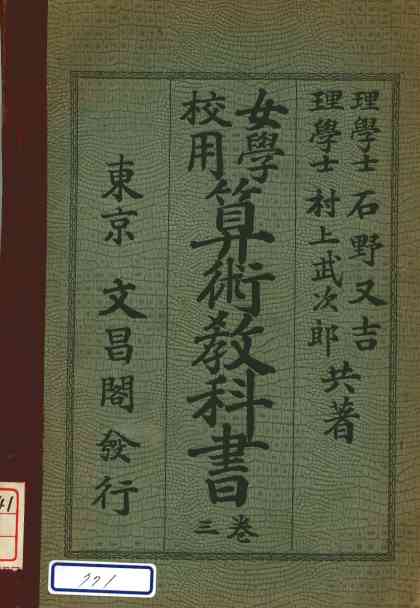 理學士 石野又吉
理學士 村上武次郎
共著
女學
校用
算術敎科書
卷
三
東京 文昌閣發行
41
771